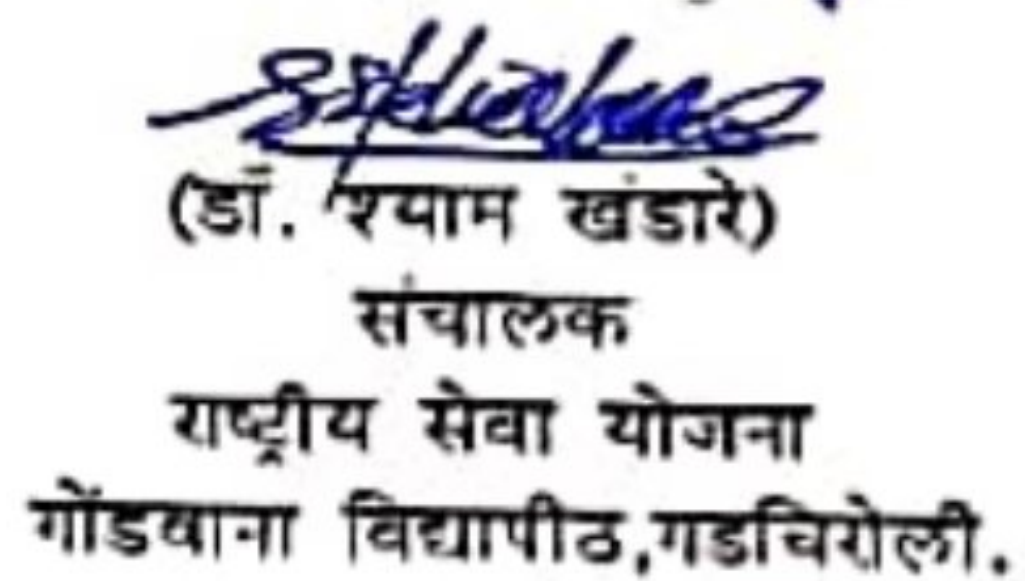 (डॉ. श्याम खंडारे)
संचालक
राष्ट्रीय सेवा योजना
गोंडवाना विद्यापीठ,गडचिरोली.